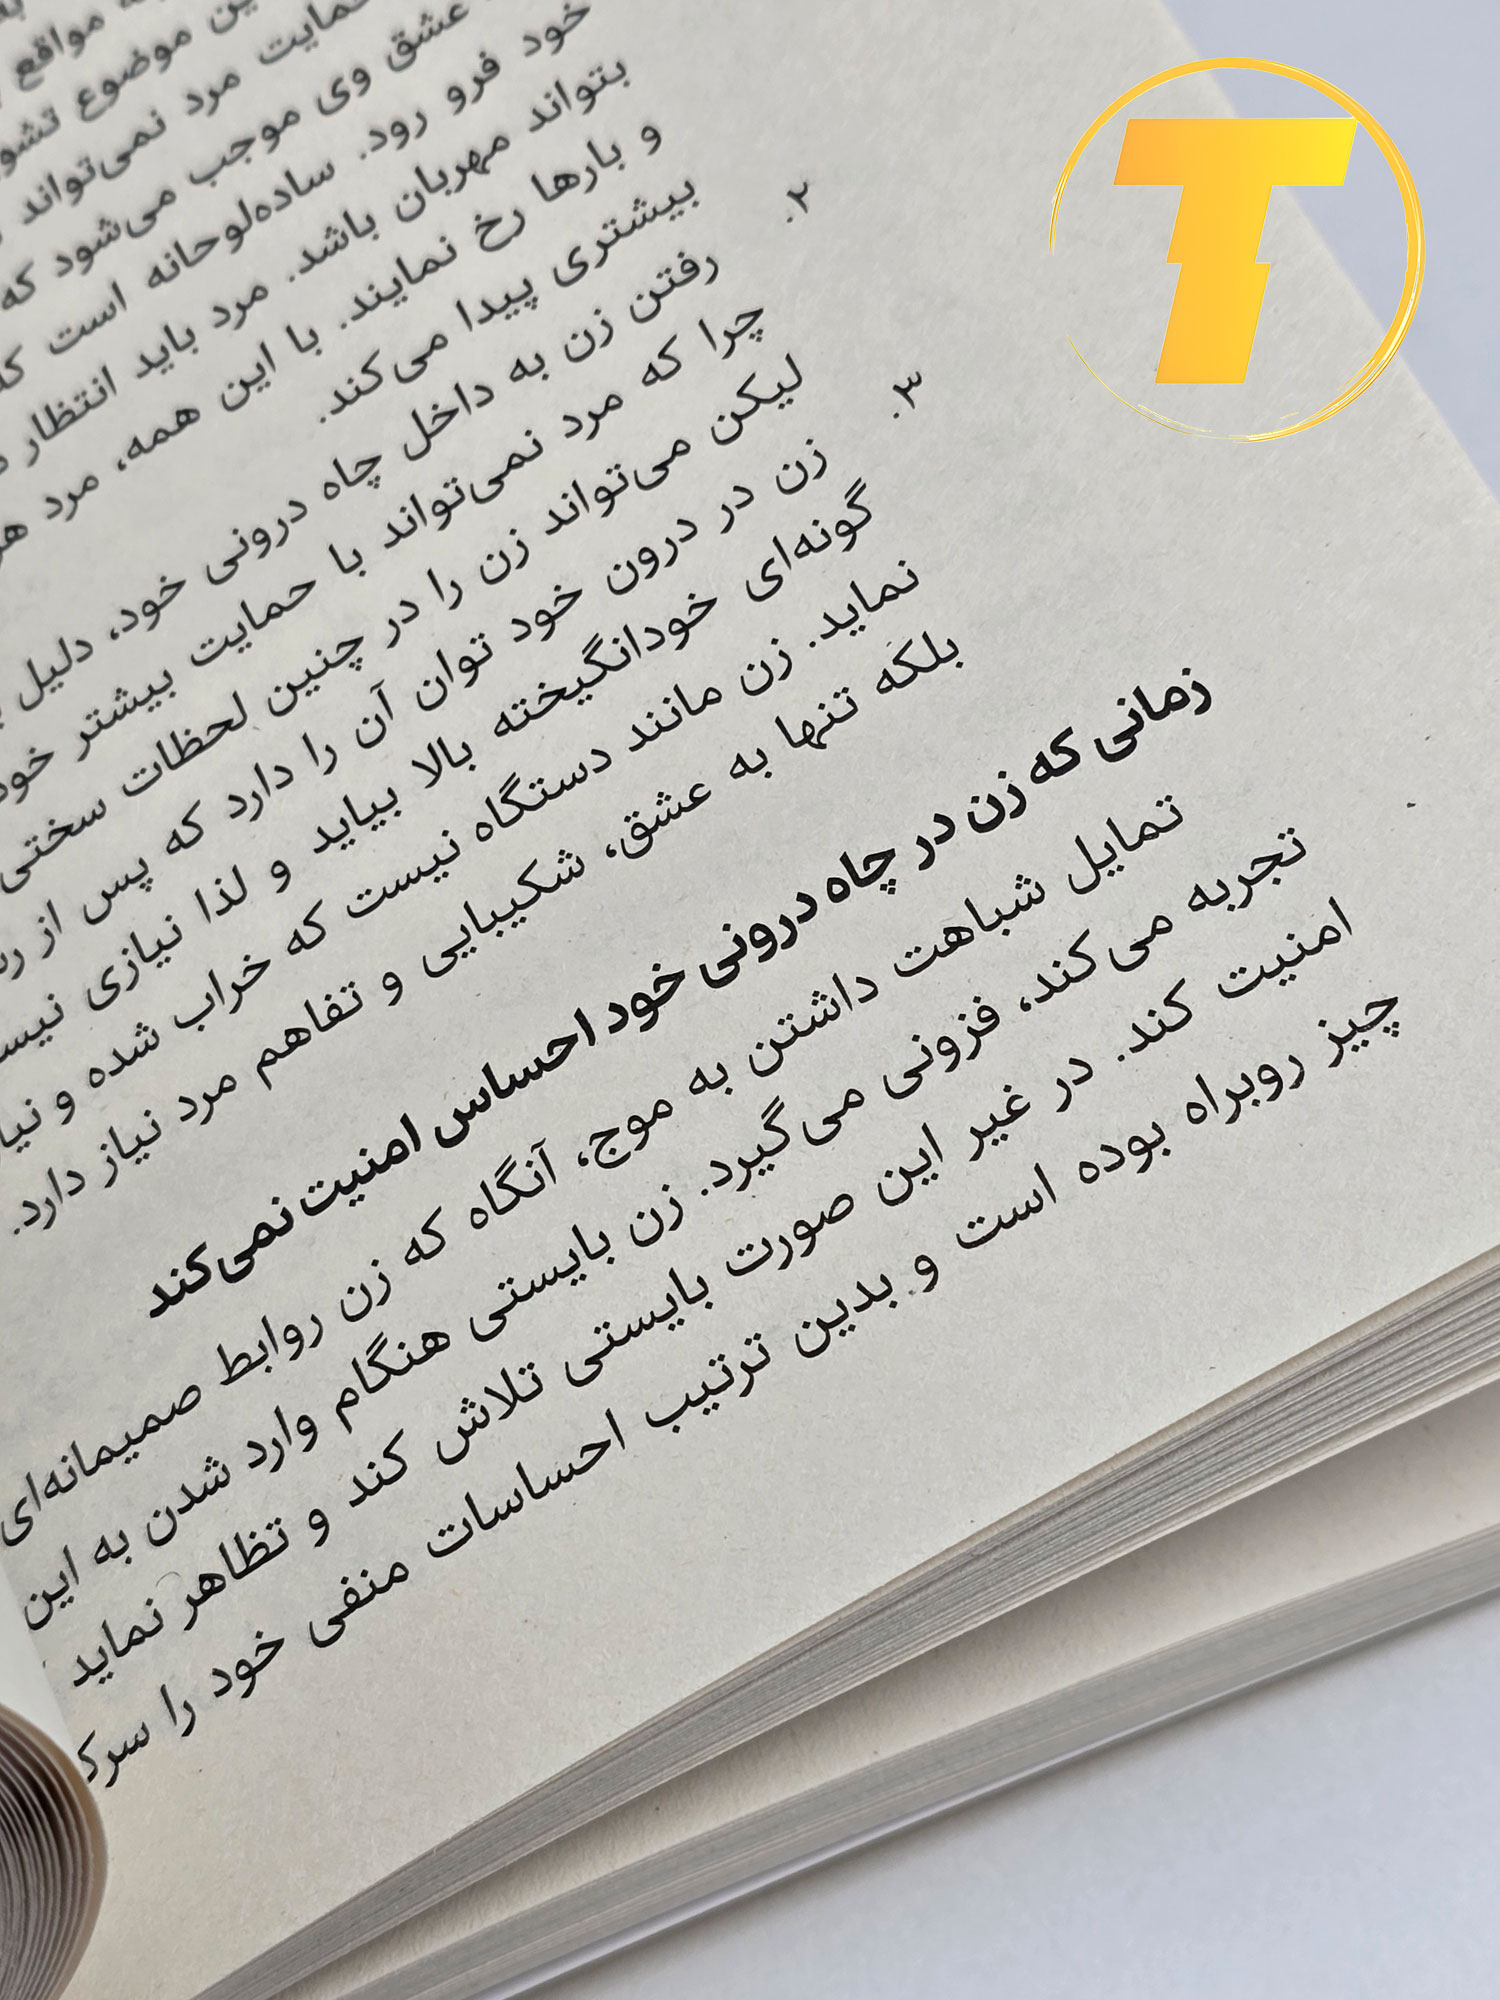 مواقع
این موضوع
حمایت مرد نمی‌تواند
عشق وی موجب می‌شود که
خود فرو رود. ساده‌لوحانه است که
بتواند مهربان باشد. مرد باید انتظار
و بارها رخ نمایند. با این همه، مرد
بیشتری پیدا می‌کند.
۲. رفتن زن به داخل چاه درونی خود، دلیل
چرا که مرد نمی‌تواند با حمایت بیشتر خود
لیکن می‌تواند زن را در چنین لحظات سختی
۳. زن در درون خود توان آن را دارد که پس از
گونه‌ای خودانگیخته بالا بیاید و لذا نیازی
نماید. زن مانند دستگاه نیست که خراب شده و
بلکه تنها به عشق، شکیبایی و تفاهم مرد نیاز دارد.
زمانی که زن در چاه درونی خود احساس امنیت نمی‌کند
تمایل شباهت داشتن به موج، آنگاه که زن روابط صمیمانه‌ای
تجربه می‌کند، فزونی می‌گیرد. زن بایستی هنگام وارد شدن به این
امنیت کند. در غیر این صورت بایستی تلاش کند و تظاهر نماید
چیز روبراه بوده است و بدین ترتیب احساسات منفی خود را
T